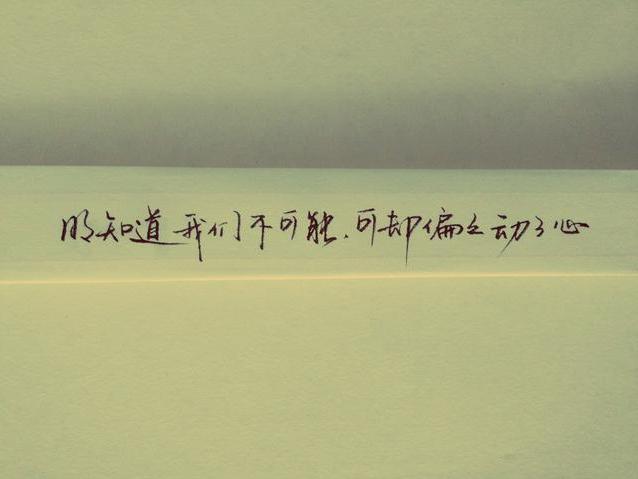 明知道我们不可能.可却偏之动了心